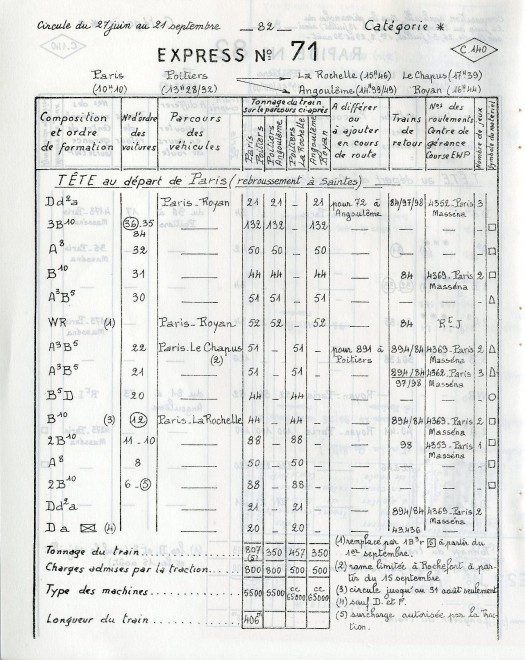 Circule du 27 juin au 21 septembre — 82 — Catégorie *
EXPRESS Nº 71
C 140
Paris Poitiers La Rochelle (15ʰ46) Le Chapus (17ʰ39)
(10ʰ10) (13ʰ28/32) Angoulême (14ʰ39/49) Royan (16ʰ44)
Composition et ordre de formation
Nºd'ordre des voitures
Parcours des véhicules
Tonnage du train sur le parcours ci-après
Paris Poitiers
Poitiers Angoulême
Poitiers La Rochelle
Angoulême Royan
A différer ou à ajouter en cours de route
Trains de retour
Nºs des roulements Centre de gérance Course EWP
Nombre de jeux
Symbole du matériel
TÊTE au départ de Paris (rebroussement à Saintes)
Dd²a Paris-Royan 21 21 — 21 pour 72 à Angoulême 84/97/98 4352-Paris Masséna 3
3B¹⁰ 36.35 34 132 132 132
A⁸ 32 50 50 — 50
B¹⁰ 31 44 44 — 44 84 4369-Paris Masséna 2
A³B⁵ 30 51 51 — 51
WR (1) Paris-Royan 52 52 — 52 84 RᵗJ
A³B⁵ 22 Paris.Le Chapus (2) 51 — 51 — pour 891 à Poitiers 894/84 4369-Paris Masséna 2
A³B⁵ 21 51 — 51 — 894/84 97/98 4362-Paris Masséna 3
B⁵D 20 44 — 44 —
B¹⁰ (3) 12 Paris.La Rochelle 44 — 44 — 894/84 4369-Paris Masséna 2
2B¹⁰ 11-10 88 — 88 — 98 4353-Paris Masséna 1
A⁸ 8 50 — 50 —
2B¹⁰ 6-5 88 — 88 —
Dd²a 21 — 21 — 894/84 4369-Paris Masséna 2
Da (4) 20 — 20 — 49.436 —
Tonnage du train 807 (5) 350 457 350
Charges admises par la traction 800 800 500 500
Type des machines 5500 5500 CC 65000 CC 65000
Longueur du train 406ᵐ
(1) remplacé par 1B³r 5 à partir du 1er septembre.
(2) rame limitée à Rochefort à partir du 15 septembre
(3) circule jusqu'au 31 août seulement
(4) sauf D. et F.
(5) surcharge autorisée par la Traction.